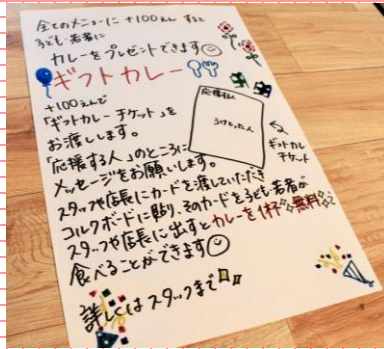 全てのメニューに +100えん すると
子ども・若者に
カレーをプレゼントできます
ギフトカレー
+100えんで
「ギフトカレーチケット」を
お渡しします。
「応援する人」のところに
メッセージをお願いします。
応援する人
うけとった人
ギフトカレー
チケット
スタッフや店長にカードを渡していただき
コルクボードに貼り、そのカードを子ども・若者が
スタッフや店長に出すとカレーを1杯無料で
食べることができます
詳しくはスタッフまで